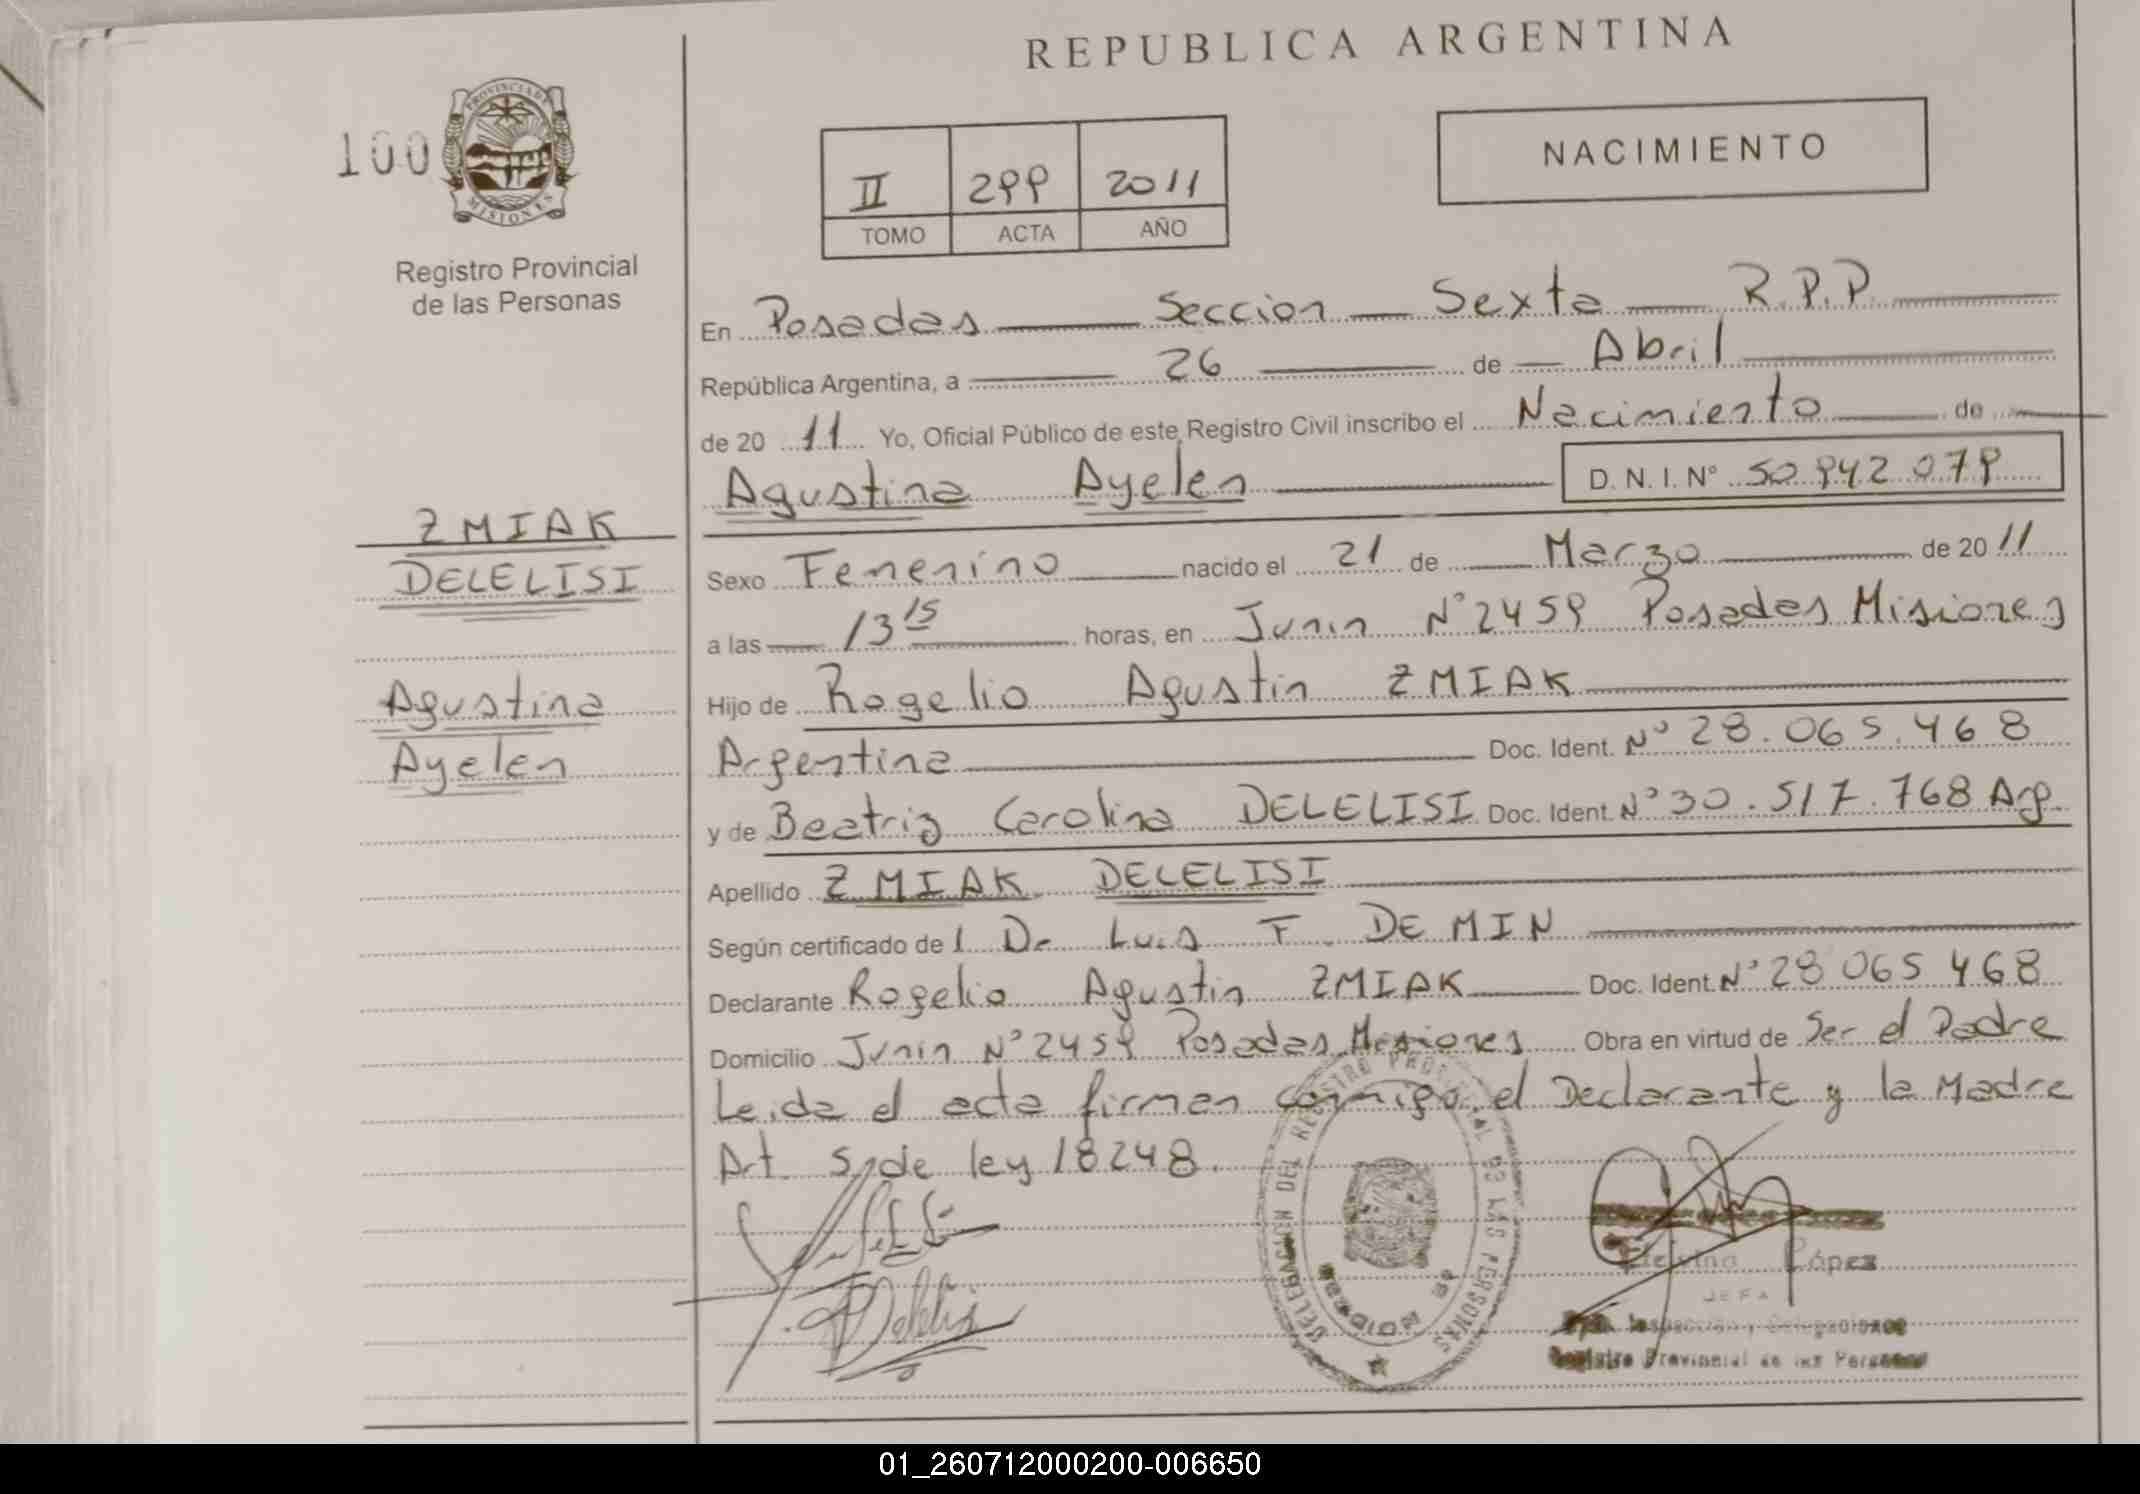 REPUBLICA ARGENTINA
100
PROVINCIA DE MISIONES
Registro Provincial
de las Personas
II 299 2011
TOMO ACTA AÑO
NACIMIENTO
En Posadas Seccion Sexta R.P.P.
República Argentina, a 26 de Abril
de 20 11 Yo, Oficial Público de este Registro Civil inscribo el Nacimiento de
Agustina Ayelen D. N. I. N° 50.942.079
ZMIAK
DELELISI
Agustina
Ayelen
Sexo Femenino nacido el 21 de Marzo de 20 11
a las 13 15 horas, en Junin N° 2459 Posadas Misiones
Hijo de Rogelio Agustin ZMIAK
Argentina Doc. Ident. N° 28.065.468
y de Beatriz Carolina DELELISI Doc. Ident. N° 30.517.768 Arg.
Apellido ZMIAK DELELISI
Según certificado de l Dr Luis F. DE MIN
Declarante Rogelio Agustin ZMIAK Doc. Ident. N° 28 065 468
Domicilio Junin N° 2459 Posadas Misiones Obra en virtud de Ser el Padre
Leida el acta firman conmigo el Declarante y la Madre
Art. 5 de ley 18248.
DELEGACION DEL REGISTRO PROVINCIAL DE LAS PERSONAS
López
JEFA
Registro Provincial de las Personas
01_260712000200-006650